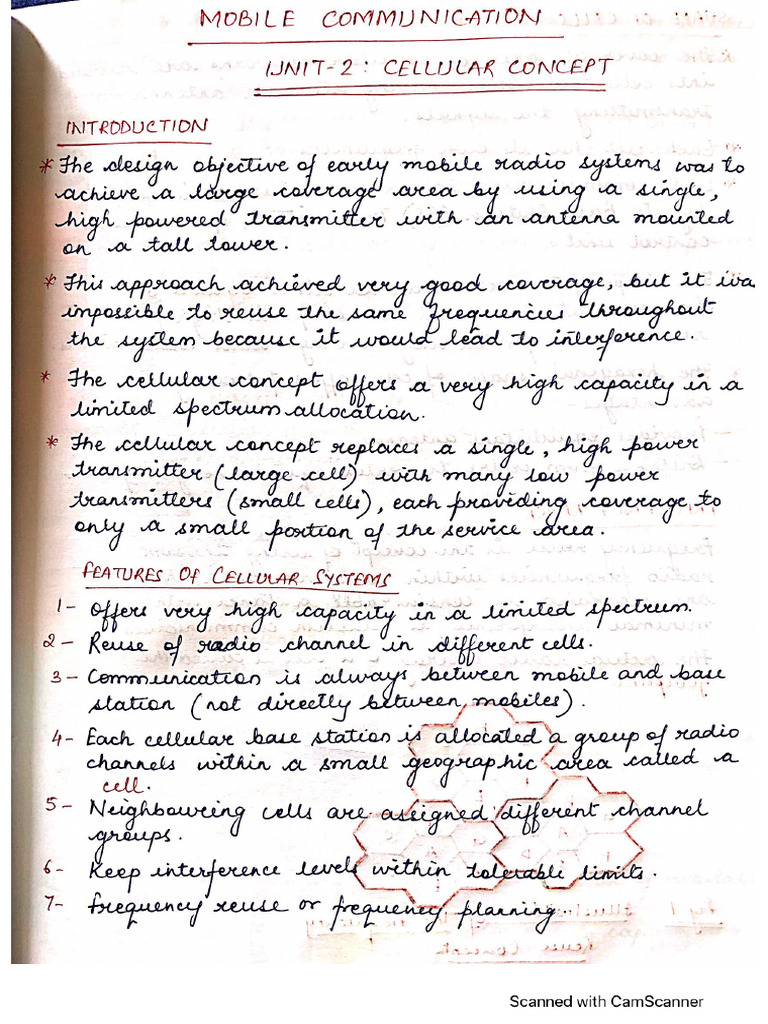 MOBILE COMMUNICATION
UNIT-2: CELLULAR CONCEPT
INTRODUCTION
* The design objective of early mobile radio systems was to
achieve a large coverage area by using a single,
high powered transmitter with an antenna mounted
on a tall tower.
* This approach achieved very good coverage, but it was
impossible to reuse the same frequencies throughout
the system because it would lead to interference.
* The cellular concept offers a very high capacity in a
limited spectrum allocation.
* The cellular concept replaces a single, high power
transmitter (large cell) with many low power
transmitters (small cells), each providing coverage to
only a small portion of the service area.
FEATURES OF CELLULAR SYSTEMS
1- Offers very high capacity in a limited spectrum.
2- Reuse of radio channel in different cells.
3- Communication is always between mobile and base
station (not directly between mobiles).
4- Each cellular base station is allocated a group of radio
channels within a small geographic area called a
cell.
5- Neighbouring cells are assigned different channel
groups.
6- Keep interference levels within tolerable limits.
7- Frequency reuse or frequency planning.
Scanned with CamScanner